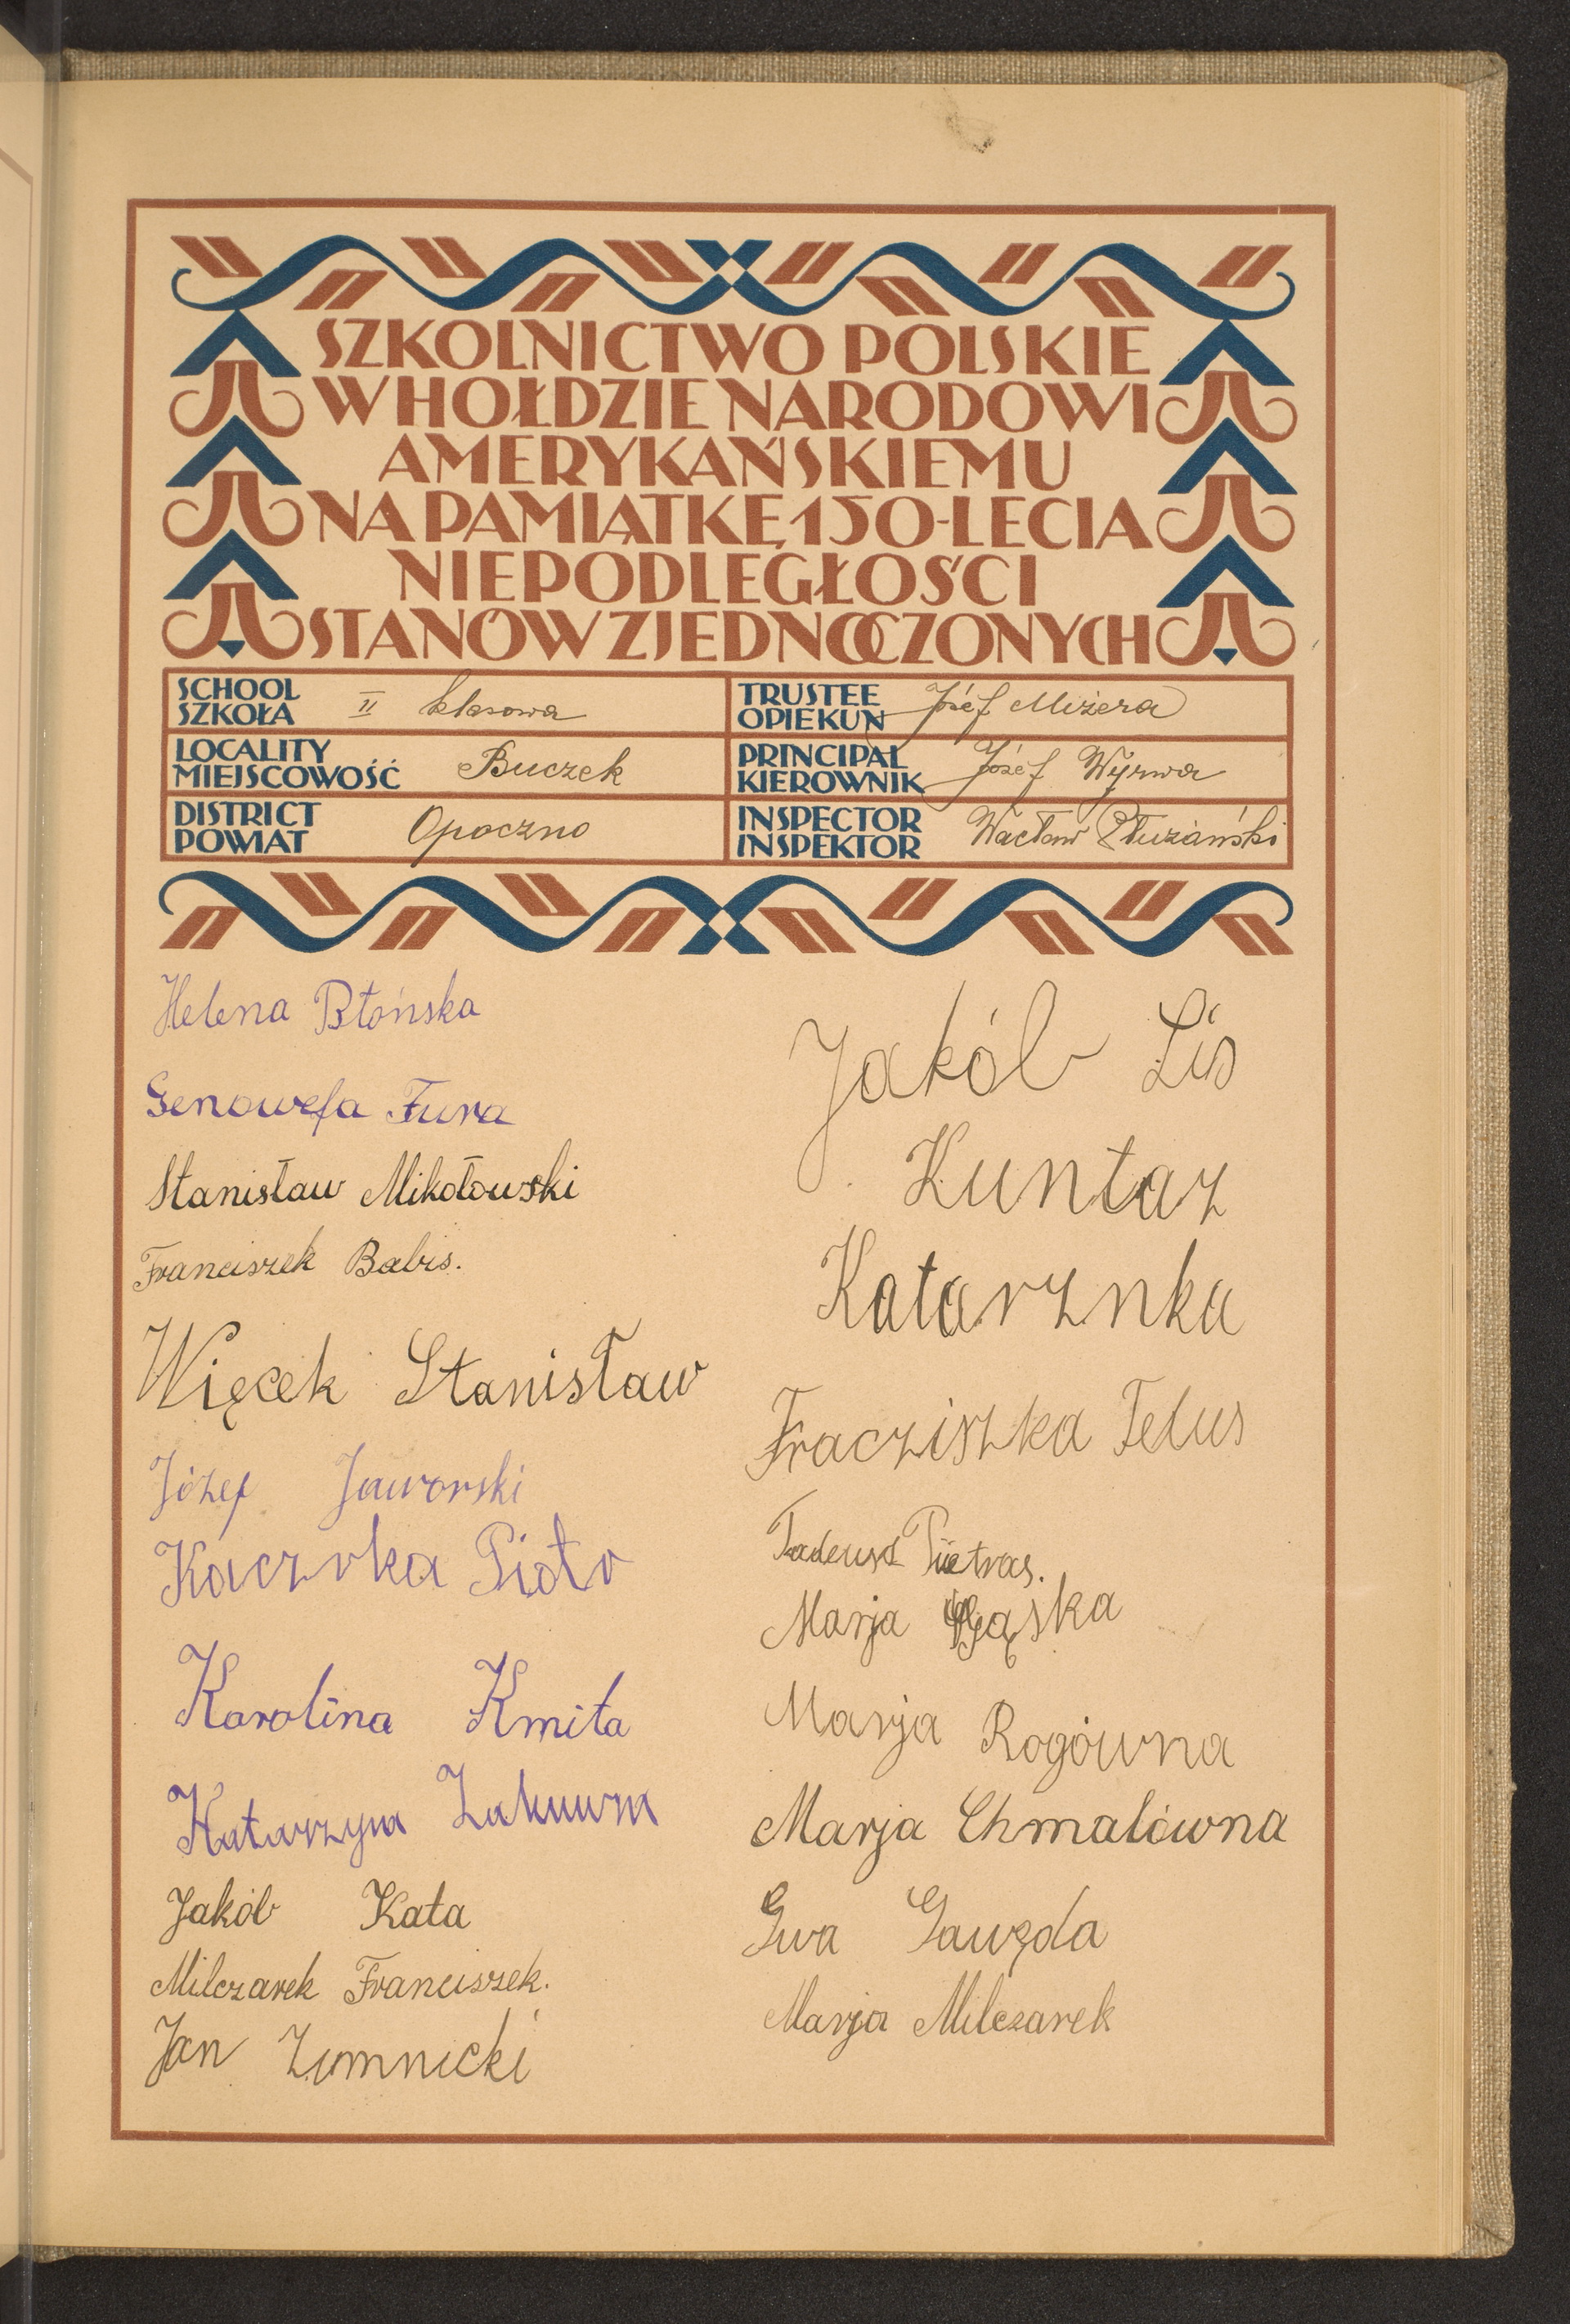 SZKOLNICTWO POLSKIE
W HOŁDZIE NARODOWI
AMERYKAŃSKIEMU
NA PAMIĄTKĘ 150-LECIA
NIEPODLEGŁOŚCI
STANÓW ZJEDNOCZONYCH
SCHOOL
SZKOŁA
II klasowa
TRUSTEE
OPIEKUN
Józéf Miżera
LOCALITY
MIEJSCOWOŚĆ
Buczek
PRINCIPAL
KIEROWNIK
Józéf Wyrwa
DISTRICT
POWIAT
Opoczno
INSPECTOR
INSPEKTOR
Wacław
Helena Błońska
Genowefa Fura
Stanisław Mikołowski
Franciszek Babis.
Więcek Stanisław
Józef Jaworski
Kaczrka Piotr
Karolina Kmita
Katarzyna
Jakób Kata
Milczarek Franciszek.
Jan Zimnicki
Jakób Lis
Kuntaz
Katarznka
Fracziszka Telus
Tadeusz Pietras.
Marja Gąska
Marja Rogówna
Marja Chmalówna
Ewa Gawęda
Marja Milczarek